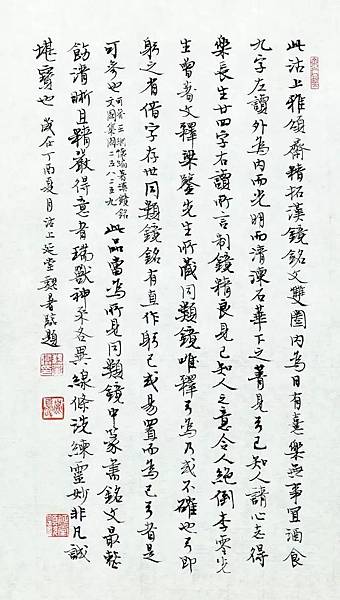 此沽上雅頌齋精拓漢鏡銘文雙圈内為日有憙樂無事宜酒食
九字左讀外為内而光明而清湅石華下之菁見乃已知人請心志得
樂長生廿四字右讀所言制鏡精良見已知人之意令人絕倒李零先
生曾著文釋梁鑒先生所藏同類鏡唯釋乃為乃或不確也乃即
躬之省借字存世同類鏡銘有直作躬已或易置而為已乃者是
可參也 此品當為所見同類鏡中字書銘文最整
文圖集圖二五八二五九
飭清晰且精嚴得意者瑞獸神采各異線條洗練靈妙非凡誠
堪寶也 歲在丁酉夏月沽上延堂題